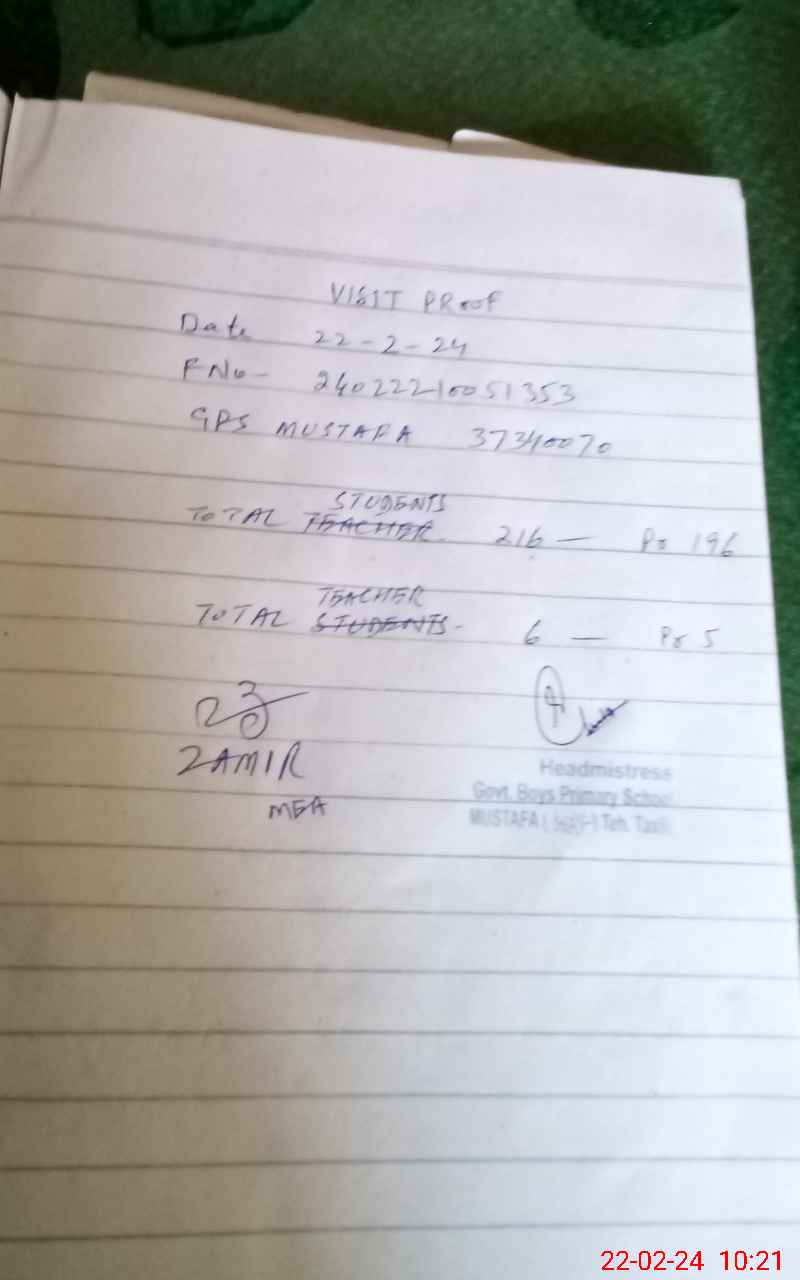 VISIT PROOF
Date 22-2-24
F No - 24022210051353
GPS MUSTAFA 37340070
STUDENTS
TOTAL TEACHER. 216 — Pr 196
TEACHER
TOTAL STUDENTS- 6 — Pr 5
ZAMIR
MEA
Headmistress
Govt. Boys Primary School
MUSTAFA ( ) Teh. Taxila
22-02-24 10:21